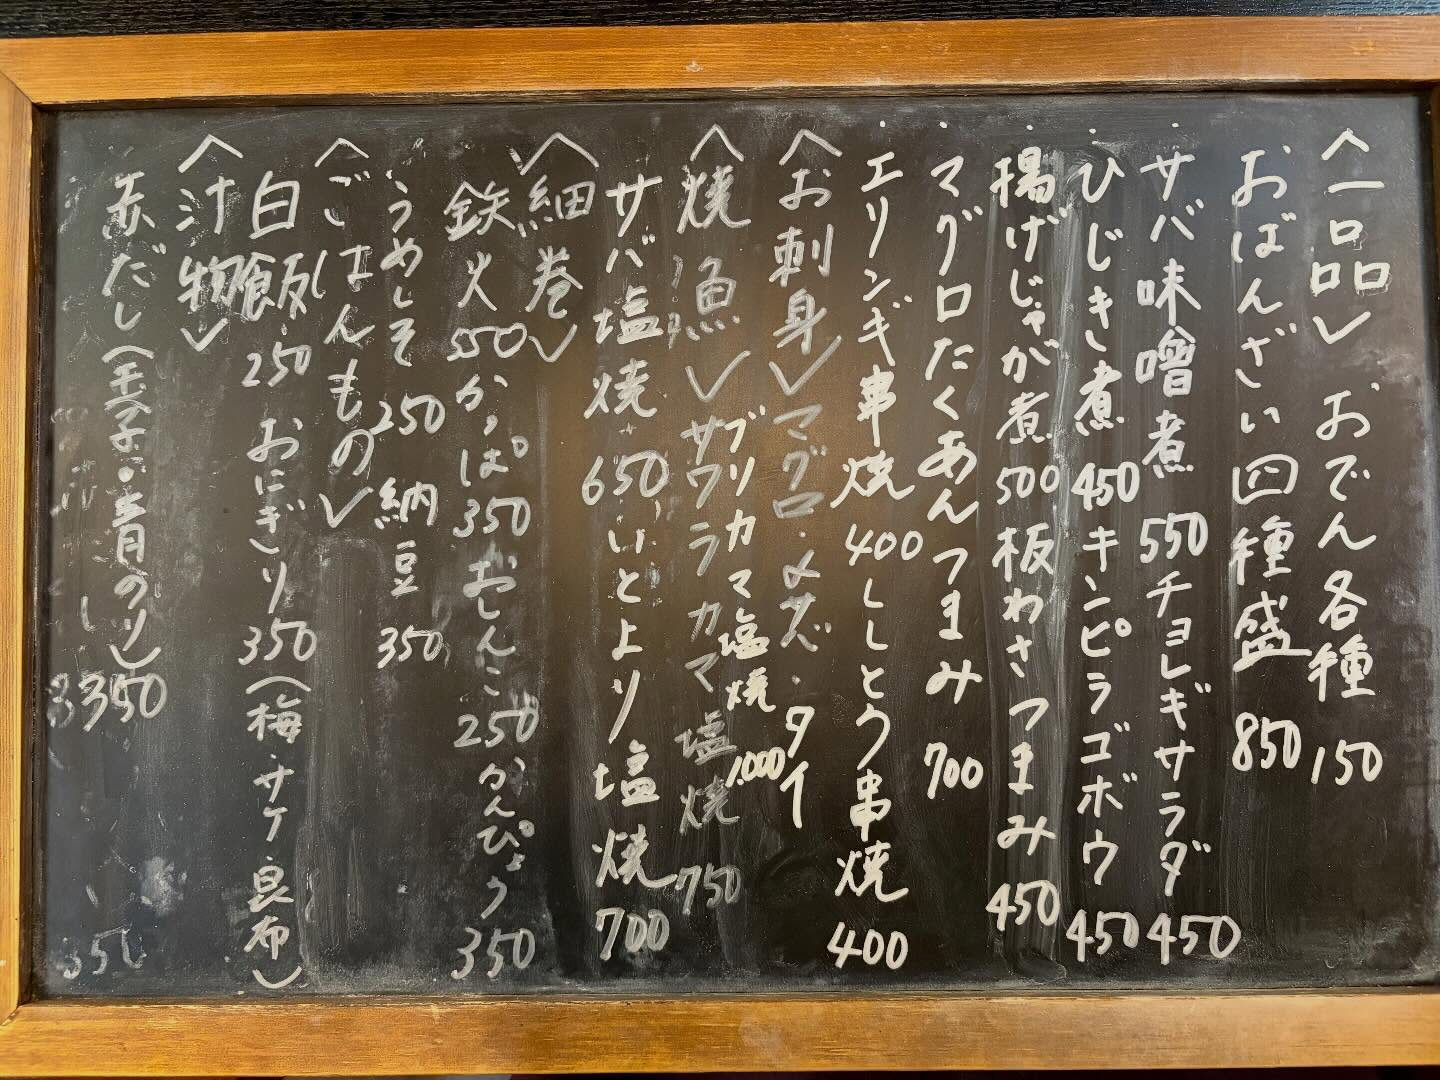 〈一品〉 おでん各種 150
おばんざい四種盛 850
・サバ味噌煮 550 チョレギサラダ 450
・ひじき煮 450 キンピラゴボウ 450
・揚げじゃが煮 500 板わさつまみ 450
・マグロたくあんつまみ 700
・エリンギ串焼 400 ししとう串焼 400
〈お刺身〉 マグロ・〆サバ・タイ
〈焼魚〉 ブリカマ塩焼 1000
サワラカマ塩焼 750
サバ塩焼 650 いとより塩焼 700
〈細巻〉
鉄火 550 かっぱ 350 おしんこ 250 かんぴょう 350
うめしそ 250 納豆 350
〈ごはんもの〉
白飯 250 おにぎり 350 (梅・サケ・昆布)
〈汁物〉
赤だし(玉子・青のり) 350
350